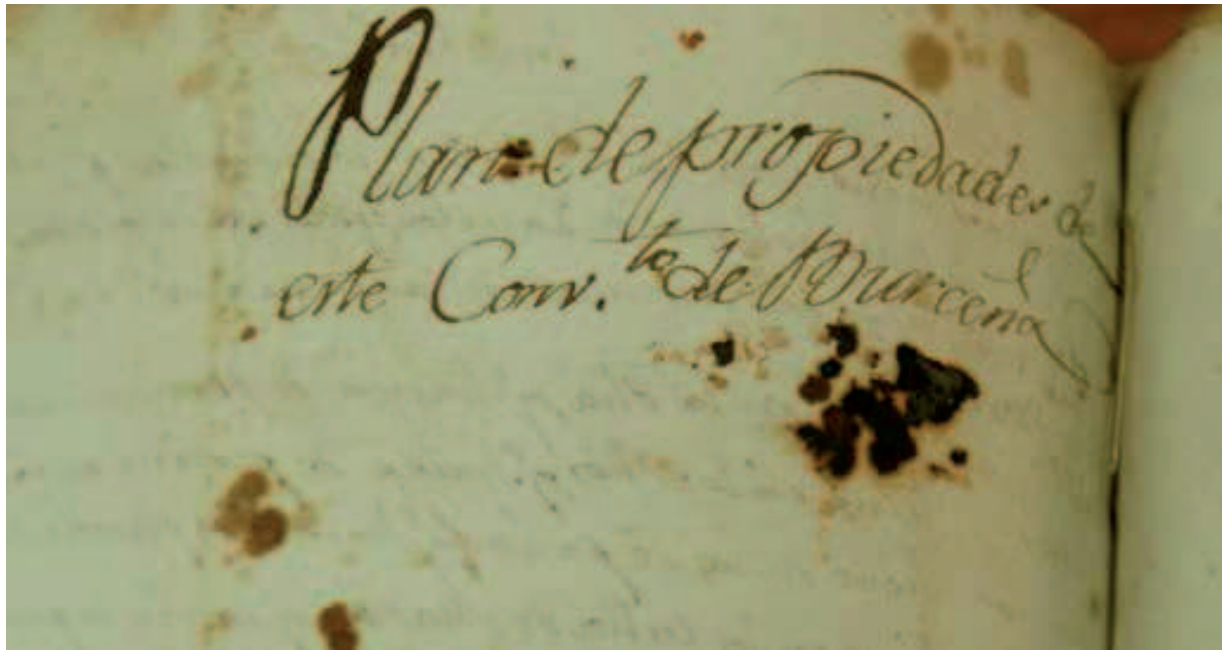 Plan de propiedades de
este Conv.to de Burceña